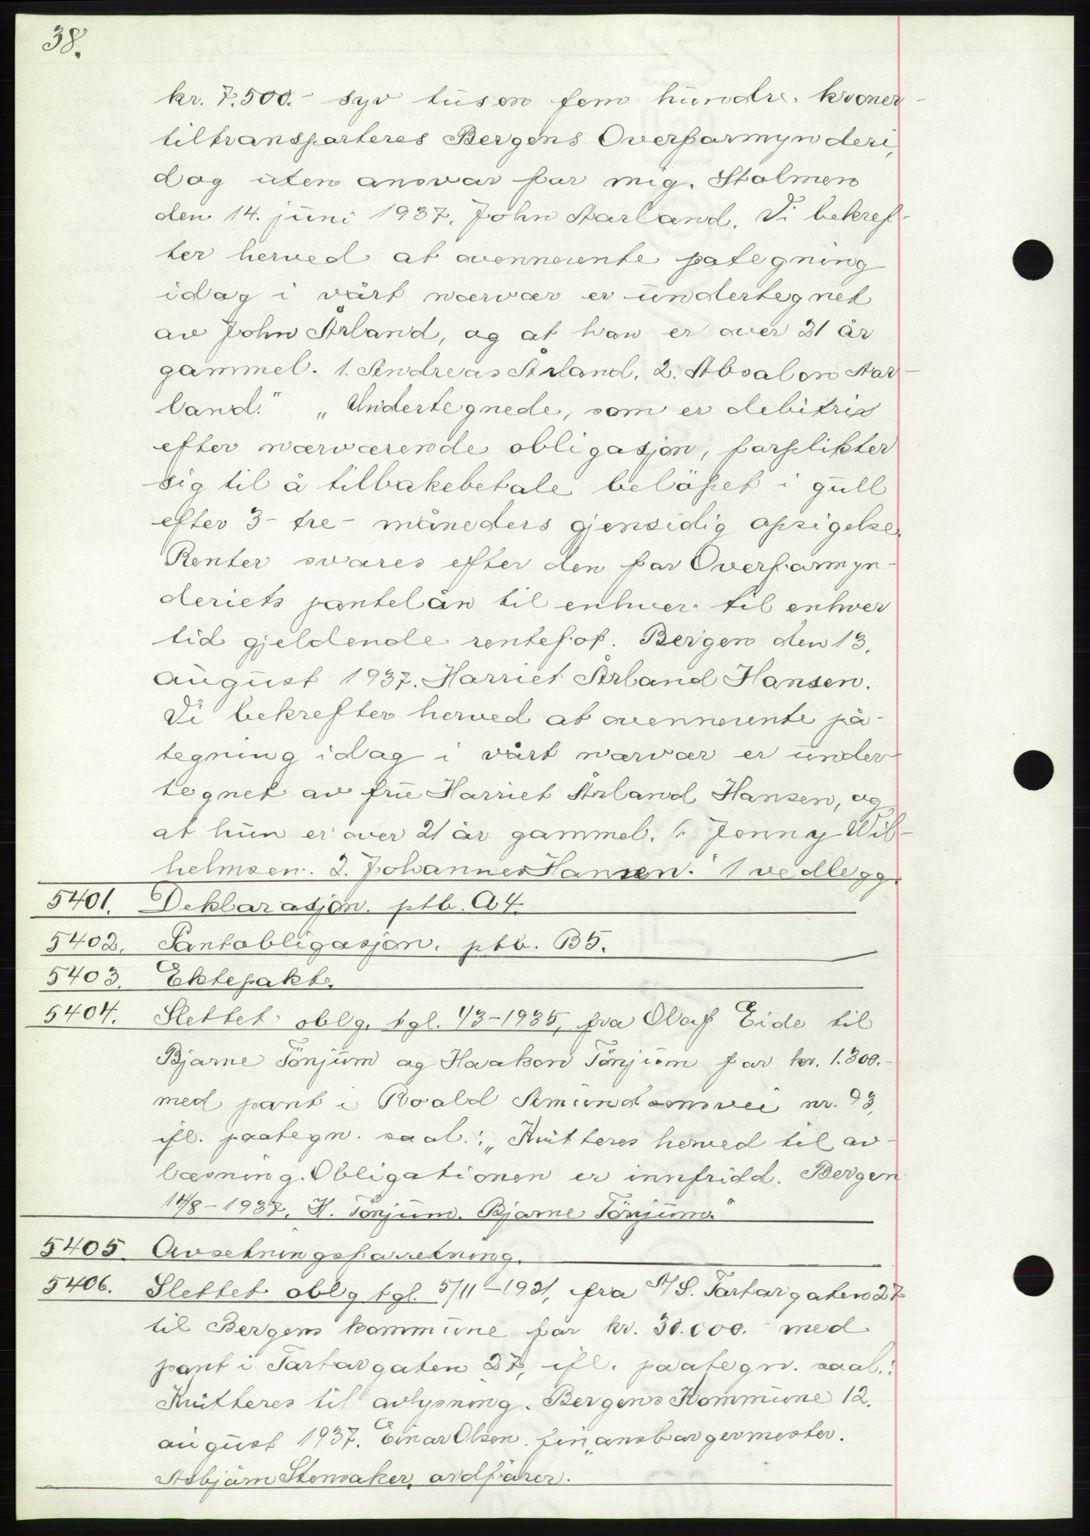 38.
kr. 7.500.- syv tusen fem hundre. kroner
tiltransporteres Bergens Overformynderi,
dog uten ansvar for mig. Stolmen
den 14. juni 1937. John Aarland. Vi bekref-
ter herved at ovennevnte pategning
idag i vårt nærvær er undertegnet
av John Årland, og at han er over 21 år
gammel. 1. Andreas Årland. 2. Absalon Aar-
land." „Undertegnede, som er debitrix
efter nærværende obligasjon, forplikter
sig til å tilbakebetale beløpet i gull
efter 3- tre- måneders gjensidig opsigelse.
Renter svares efter den for Overformyn-
deriets pantelån til enhver til enhver
tid gjeldende rentefot. Bergen den 13.
august 1937. Harriet Årland Hansen.
Vi bekrefter herved at ovennevnte på-
tegning idag i vårt nærvær er under-
tegnet av frue Harriet Årland Hansen, og
at hun er over 21 år gammel. 1. Jenny Wil-
helmsen. 2. Johannes Hansen." 1 vedlegg.
5401. Deklarasjon. ptb. A4.
5402. Pantobligasjon. ptb. B5.
5403. Ektepakt.
5404. Slettet oblg. tgl. 1/3-1935, fra Olaf Eide til
Bjarne Tönjum og Haakon Tönjum for kr. 1.300.-
med pant i Roald Amundsensvei nr. 93,
ifl. paategn. saal.: „Kvitteres herved til av-
læsning. Obligationen er innfridd. Bergen
14/8-1937. H. Tönjum. Bjarne Tönjum."
5405. Avsetningsforretning.
5406. Slettet oblg tgl. 5/11-1921, fra A/S. Tartargaten 27
til Bergens kommune for kr. 30.000.- med
pant i Tartargaten 27, ifl. paategn. saal.:
Kvitteres til avlysning. Bergens Kommune 12.
august 1937. Einar Olsen. finansborgermester.
Asbjørn Stensaker, ordfører.